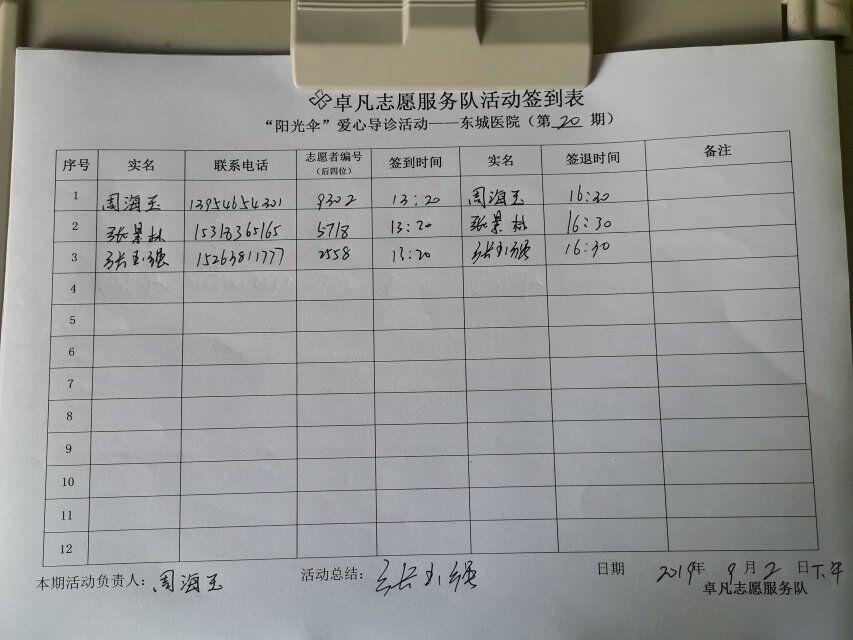 卓凡志愿服务队活动签到表
“阳光伞”爱心导诊活动——东城医院（第 20 期）
序号 实名 联系电话 志愿者编号（后四位） 签到时间 实名 签退时间 备注
1 周海玉 13954654301 9302 13:20 周海玉 16:30
2 张景林 15318365165 5718 13:20 张景林 16:30
3 张玉强 15263811777 2558 13:20 张玉强 16:30
4
5
6
7
8
9
10
11
12
本期活动负责人：周海玉 活动总结：张玉强 日期 2019年 9月 2 日下午
卓凡志愿服务队